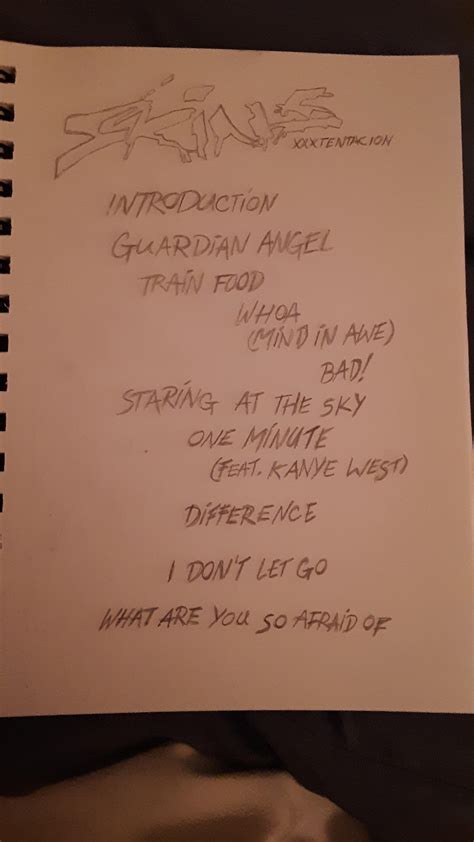 SKINS
XXXTENTACION
INTRODUCTION
GUARDIAN ANGEL
TRAIN FOOD
WHOA
(MIND IN AWE)
BAD!
STARING AT THE SKY
ONE MINUTE
(FEAT. KANYE WEST)
DIFFERENCE
I DON'T LET GO
WHAT ARE YOU SO AFRAID OF